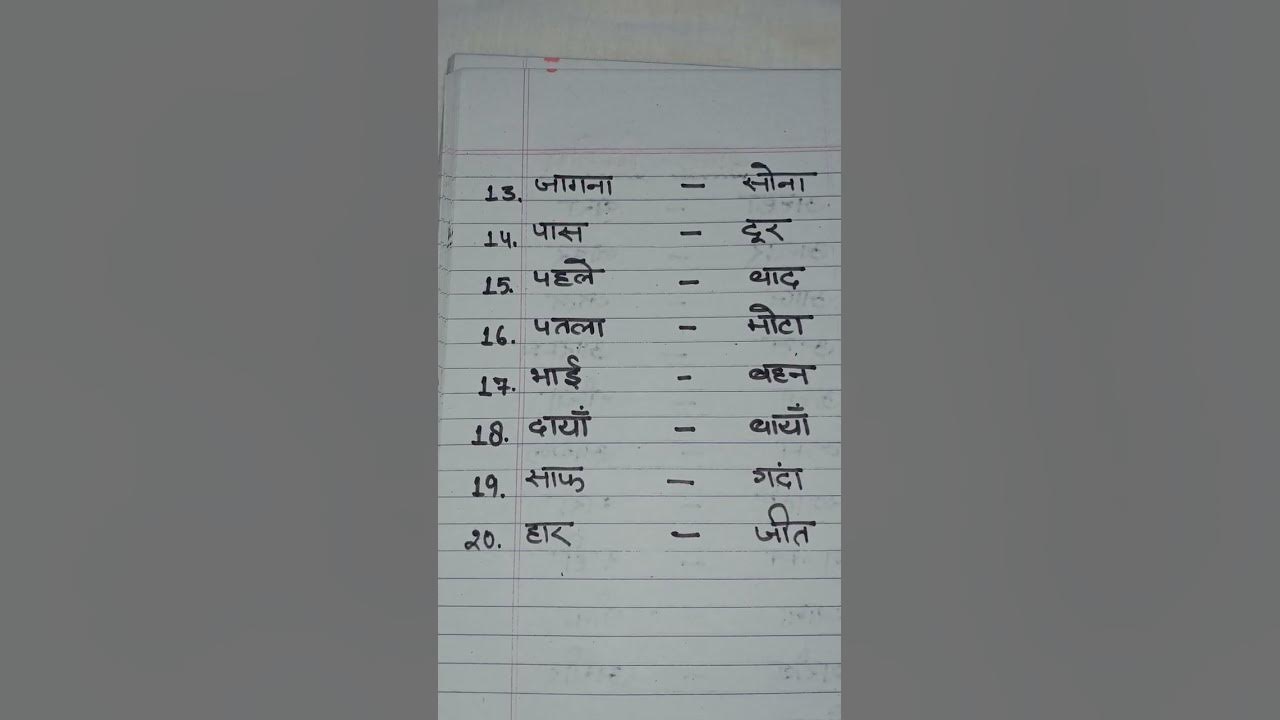 13. जागना - सोना
14. पास - दूर
15. पहले - बाद
16. पतला - मोटा
17. भाई - बहन
18. दायाँ - बायाँ
19. साफ - गंदा
20. हार - जीत